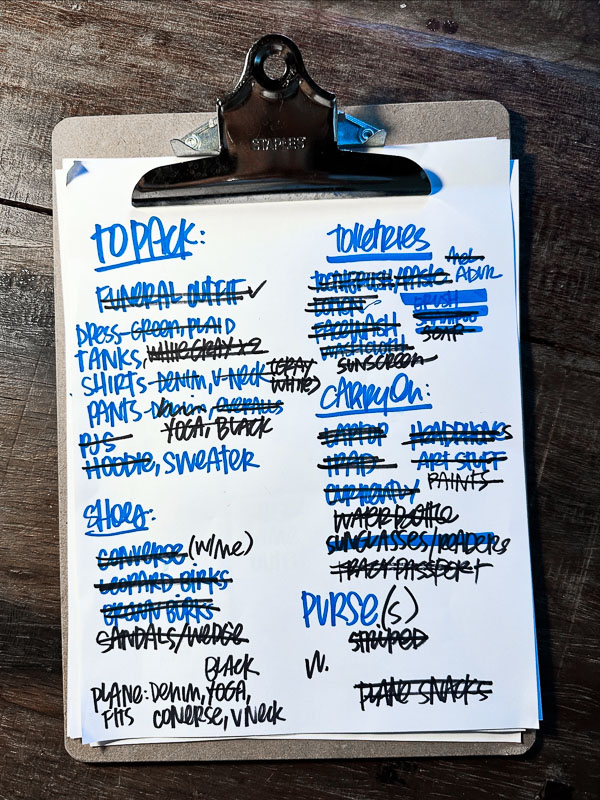 STAPLES
TO PACK:
FUNERAL OUTFIT ✓
DRESS GREEN PLAID
TANKS, WHITE GRAY X2
SHIRTS DENIM, V-NECK (GRAY
WHITE)
PANTS Denim, OVERALLS
YOGA, BLACK
PJS
HOODIE, SWEATER
SHOES:
CONVERSE (W/ME)
LEOPARD BIRKS
BROWN BIRKS
SANDALS/WEDGE
BLACK
PLANE: Denim, YOGA,
FITS CONERSE, V Neck
TOILETRIES
TOOTHBRUSH/PASTE
ADVIL
LOTION
BRUSH
FACEWASH
SHAMPOO
WASHCLOTH
SOAP
SUNSCREEN
CARRYON:
LAPTOP HEADPHONES
IPAD ART STUFF
PAINTS
WATER BOTTLE
SUNGLASSES/READERS
PASSPORT
PURSE.(S)
STRIPED
PLANE SNACKS